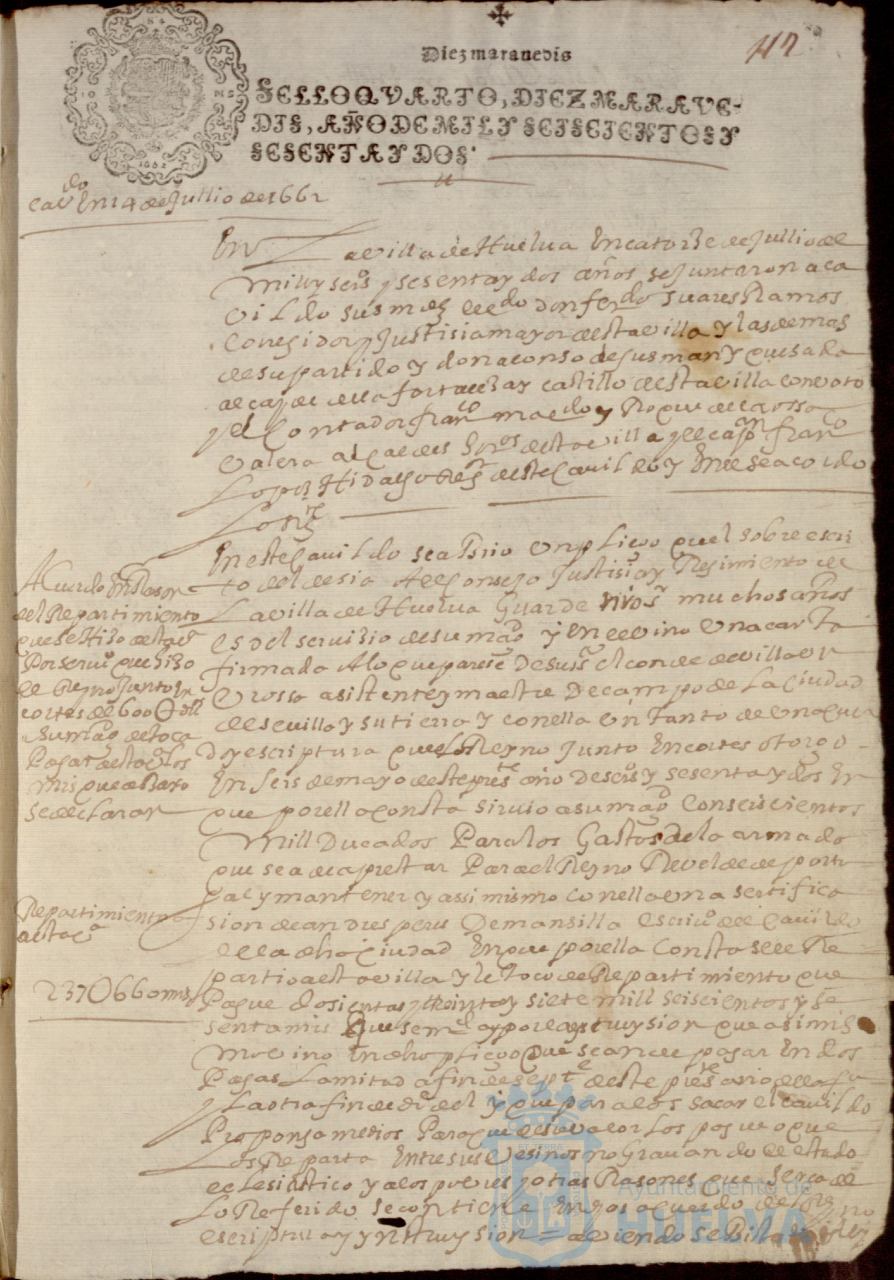 Diez maravedis
117
SELLO QVARTO, DIEZ MARAVE-
DIS, AÑO DE MIL Y SEISCIENTOS Y
SESENTA Y DOS.
Cavdo En 14 de Jullio de 1662
En La villa de Huelua En catorse de Jullio de
mill y seisos y sesenta y dos años se juntaron a ca
vildo sus mds don ferdo suares Ramos
Coregidor y Justisia mayor desta villa y las demas
de su partido y don alonso de Gusman y quesada
alcayde de la fortalesa y castillo desta villa con voto
y el Contador franco y Roque de la rossa
Valera alcaldes desta villa y el capn franco
Lopes Hidalgo Regr deste Cauildo y En el se acordo
Lo sigte
En este Cauildo se abrio un pliego quel sobre escri
to del desia Al Consejo Justisia y Regimiento de
La villa de Huelua Guarde muchos años
es del servisio de su magd y En el vino Una carta
firmada A lo que parese de su sa el conde de villaum
brossa asistente y maestre De campo de La Ciudad
de sevilla y su tierra y con ella Un Tanto de Un acuer
do y escriptura quel Reyno Junto En cortes otorgo
En seis de mayo deste preste año de seisos y sesenta y dos En
que por ella consta sirvio a su magd Con seiscientos
mill Ducados Para los Gastos de la armada
que se a de aprestar Para el Reyno Revelde de portu
gal y mantener y assimismo con ella una sertifica
sion de andres peres De mansilla escriuo del Cauildo
de la dha Ciudad En que por ella Consta se le Re
partio a esta villa y le toco de Repartimiento que
Pague dosientas y treinta y siete mill seiscientos y se
senta mrs y por la ynstruysion que asimis
mo vino En dho pliego Que se an de pagar En dos
Pagas La mitad a fin de septe deste preste año
y La otra fin de de el y que para los sacar el cauildo
Proponga medios Para que
Los Reparta Entre sus Vesinos no Gravando el estado
eclesiastico y a los pobres y otras Rasones que serca de
Lo Referido se contiene En los acuerdo del Reyno
escriptura y ynstruysion =
Acuerdo En Rason
del Repartimiento
que se Hiso desta va
Por serviº que hiso
el Reyno Junto En
cortes de 600 Dos
a su magd de toca
Pagar desta va Los
mrs que abaxo
se declaran
Repartimiento
desta va
237U660 mrs
Ayuntamiento de
HUELVA